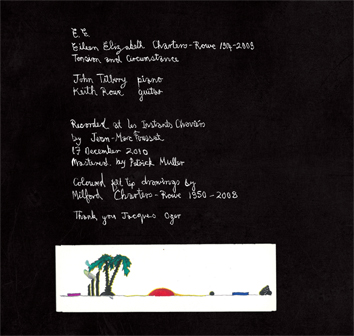 E.E.
Eileen Elizabeth Charters-Rowe 1917-2009
Tension and Circumstance
John Tilbury piano
Keith Rowe guitar
Recorded at Les Instants Chavirés
by Jean-Marc Foussat
17 December 2010
Mastered by Patrick Muller
Coloured felt tip drawings by
Milford Charters-Rowe 1950-2008
Thank you Jacques Oger